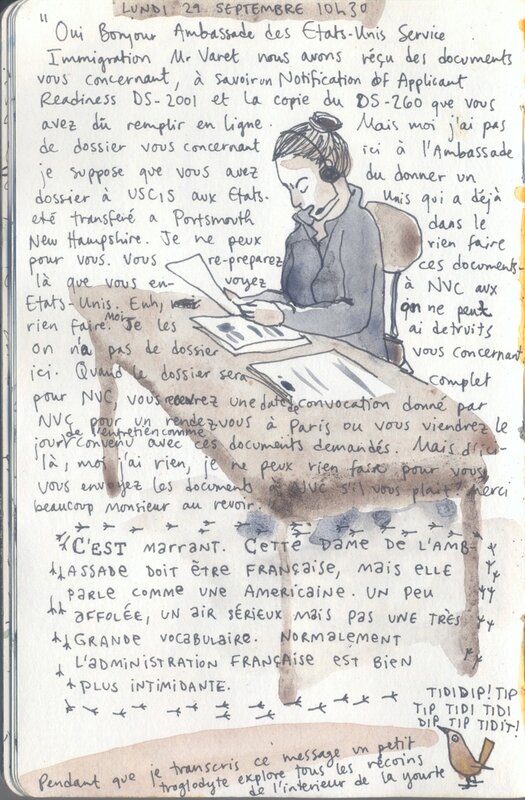 LUNDI 29 SEPTEMBRE 10h30
"Oui Bonjour Ambassade des Etats-Unis Service
Immigration Mr Varet nous avons réçu des documents
vous concernant, à savoir un Notification of Applicant
Readiness DS-2001 et la copie du DS-260 que vous
avez dû remplir en ligne. Mais moi j'ai pas
de dossier vous concernant ici à l'Ambassade
je suppose que vous avez du donner un
dossier à USCIS aux Etats- Unis qui a déjà
eté transferé a Portsmouth dans le
New Hampshire. Je ne peux rien faire
pour vous. Vous re-preparez ces documents
là que vous en- voyez à NVC aux
Etats-Unis. Euh, on ne peut
rien faire. moi Je les ai detruits
on n'a pas de dossier vous concernant
ici. Quand le dossier sera complet
pour NVC vous recevrez une date de convocation donné par
NVC pour un rendezvous à Paris ou vous viendrez le
de l'entretien comme
jour convenu avec ces documents demandés. Mais d'ici-
là, moi j'ai rien, je ne peux rien faire pour vous
vous envoyez les documents à NVC s'il vous plait? merci
beaucoup monsieur au revoir.
C'EST marrant. Cette DAME DE L'AMB-
ASSADE DOIT ÊTRE FRANÇAISE, MAIS ELLE
PARLE COMME UNE AMERICAINE. UN PEU
AFFOLÉE, UN AIR SÉRIEUX MAIS PAS UNE TRÈS
GRANDE VOCABULAIRE. NORMALEMENT
L'ADMINISTRATION FRANÇAISE EST BIEN
PLUS INTIMIDANTE.
TIDIDIP! TIP
TIP TIDI TIDI
DIP TIP TIDIT!
Pendant que je transcris ce message un petit
troglodyte explore tous les recoins
de l'interieur de la yourte